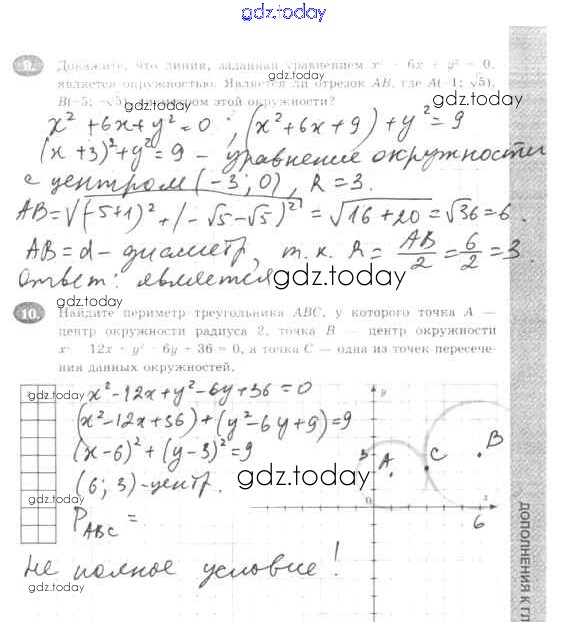 gdz.today
9. Докажите, что линия, заданная уравнением x² + 6x + y² = 0,
является окружностью. Является ли отрезок AB, где A(−1; √5),
B(−5; −√5), диаметром этой окружности?
gdz.today
gdz.today
x² + 6x + y² = 0 ; (x² + 6x + 9) + y² = 9
(x + 3)² + y² = 9 – уравнение окружности
gdz.today
с центром (−3; 0), R = 3.
AB = √(−5+1)² + (−√5−√5)² = √16+20 = √36 = 6.
AB = d – диаметр, т.к. R = AB/2 = 6/2 = 3.
Ответ: является
gdz.today
gdz.today
10. Найдите периметр треугольника ABC, у которого точка A —
центр окружности радиуса 2, точка B — центр окружности
x² − 12x + y² − 6y + 36 = 0, а точка C — одна из точек пересече-
ния данных окружностей.
gdz.today
x² − 12x + y² − 6y + 36 = 0
(x² − 12x + 36) + (y² − 6y + 9) = 9
(x − 6)² + (y − 3)² = 9
(6; 3) – центр.
gdz.today
y
3
A
C
B
0
6
x
P ABC =
Не полное условие!
gdz.today
gdz.today
ДОПОЛНЕНИЯ К ГЛ